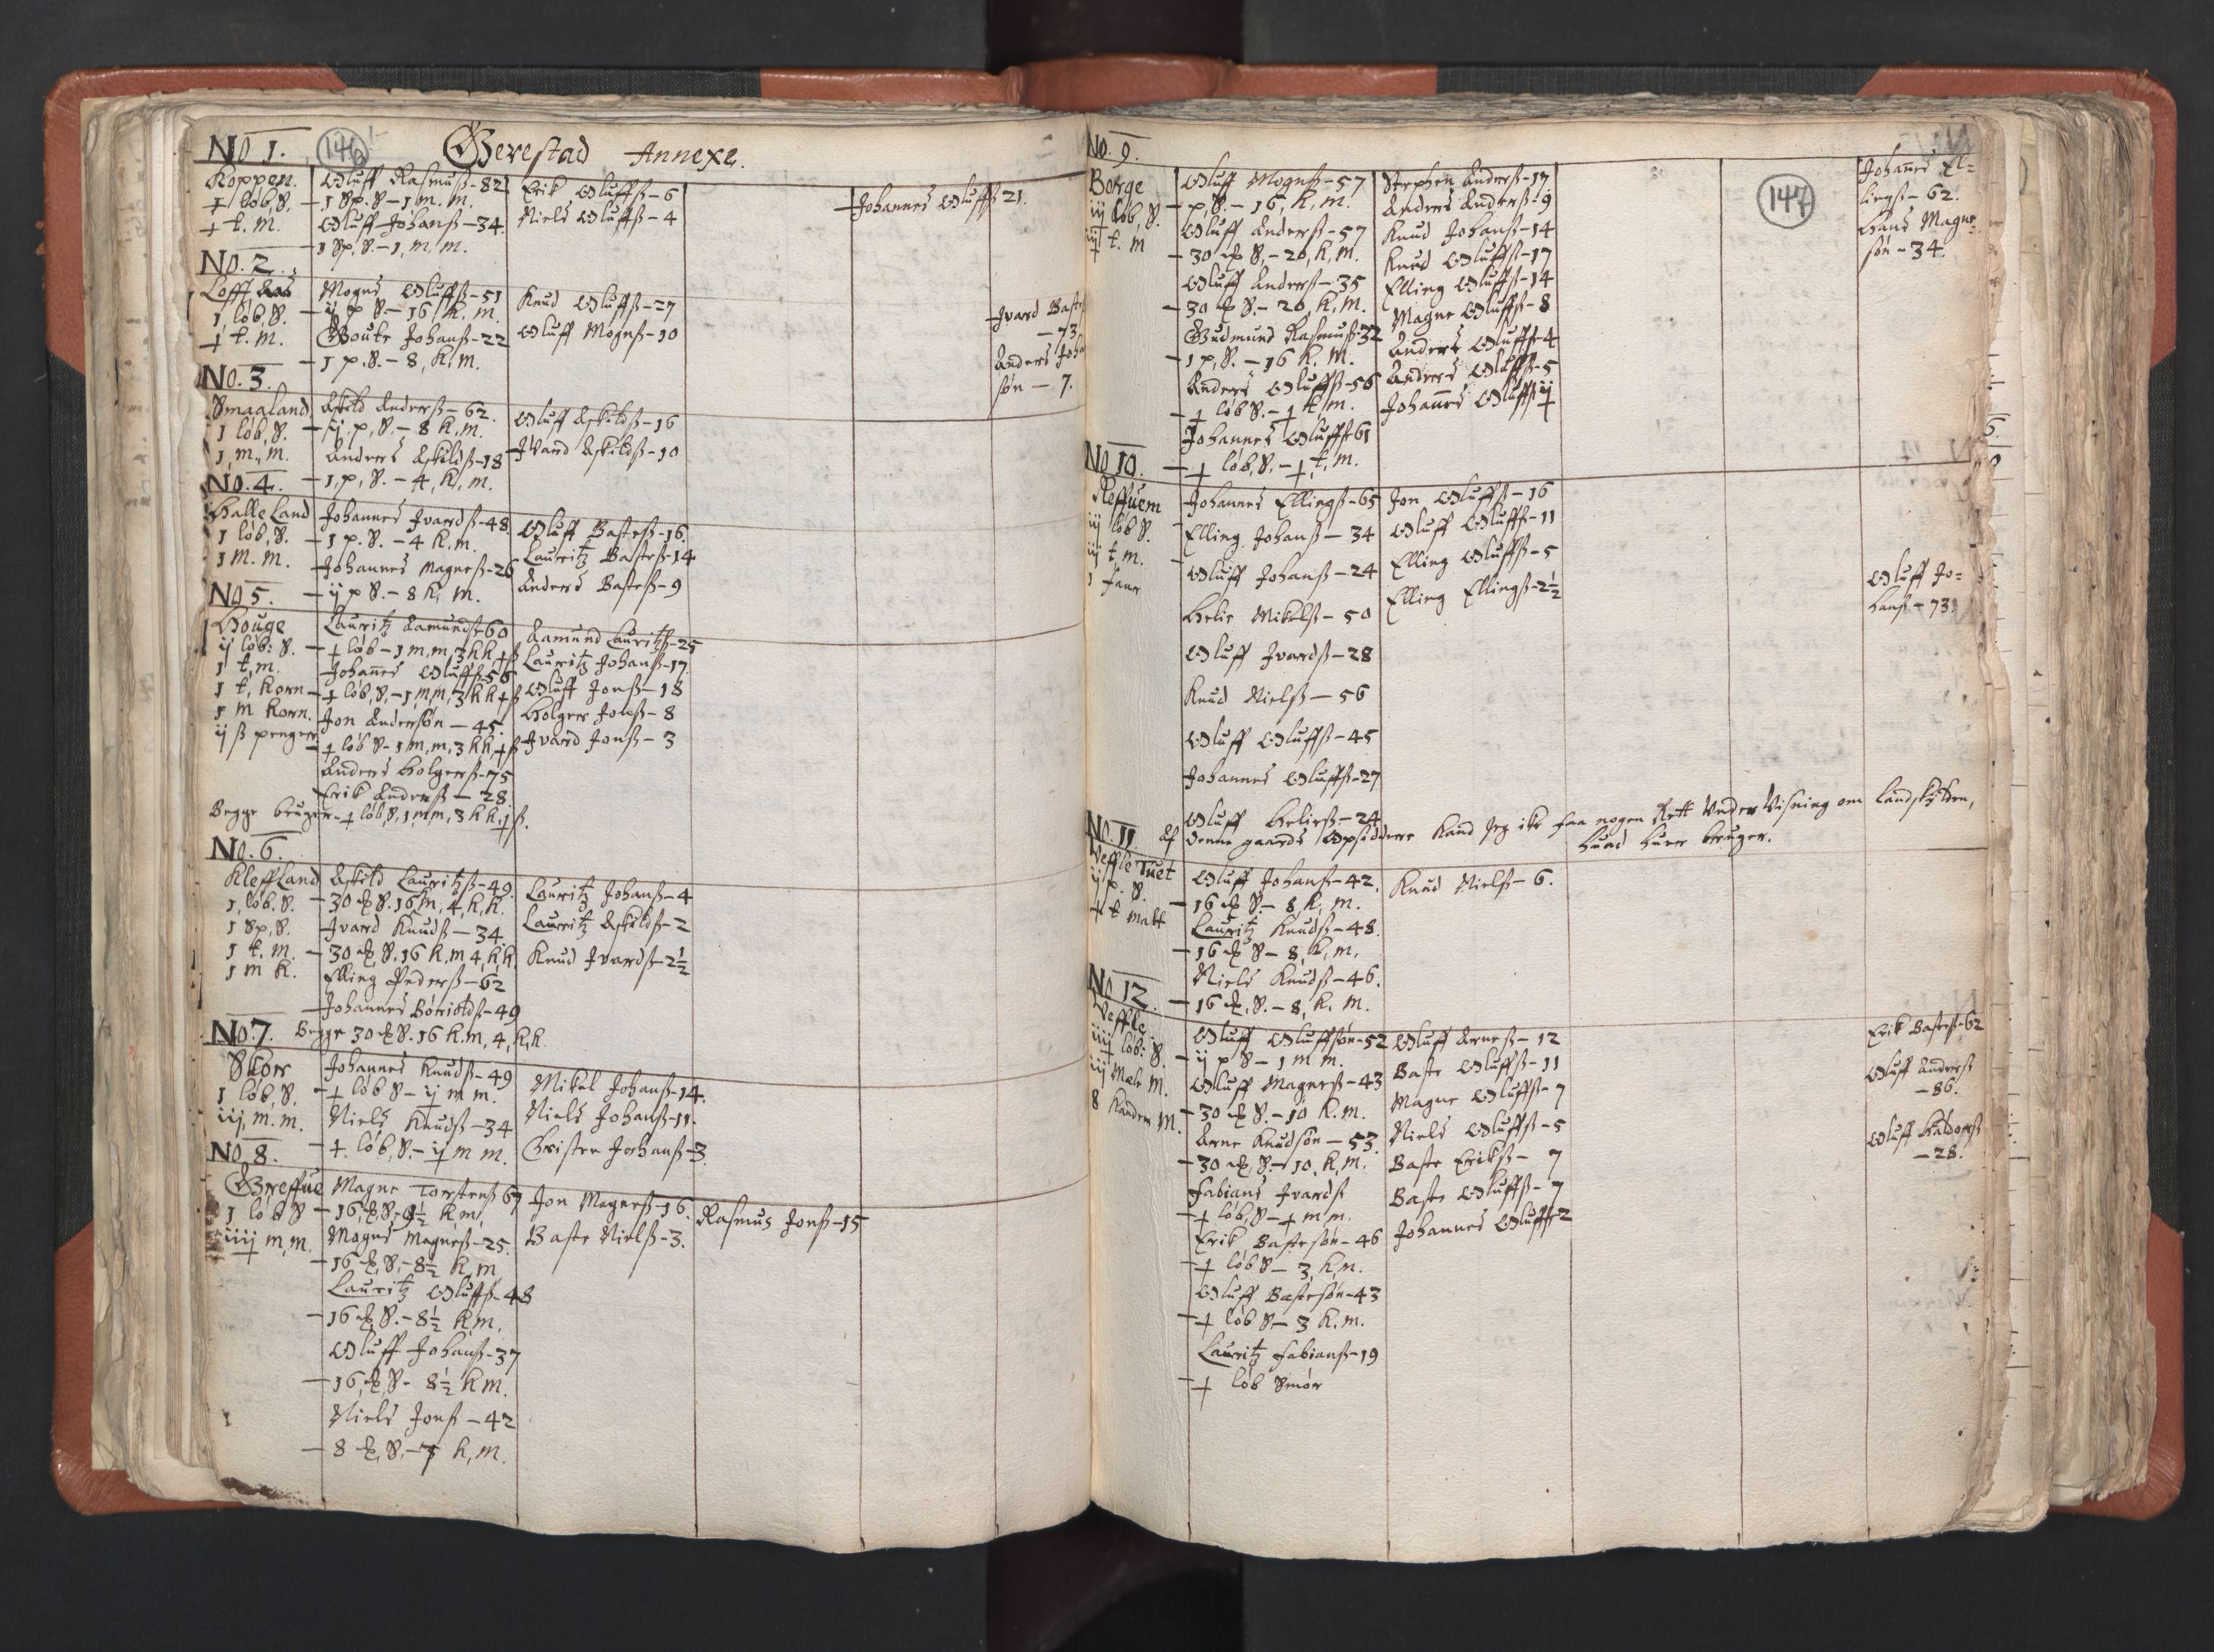 No 1.
146
Gierestad Annexe.
Koppen.
1 løb, S.
+ t. m.
Oluff Rasmusß-82
-1 Sp. S-1 m. m.
Oluff Johanß-34
-1 Sp, S.-1, m. m.
Erik Oluffß-6
Niels Oluffß-4
Johannes Oluffß 21.
No. 2.
Lofft Aas
1 løb, S.
+ t. m.
Mogns Oluffß-51
-ij p S.-16 K. m.
Goute Johanß-22
-1 p. S.-8, K, m.
Knud Oluffß-27
Oluff Mognß-10
Jvard Bast
-73.
Anders Joha
søn - 7.
No. 3.
Smaaland
1 løb, S.
1, m, m.
Askild Anderß-62.
-ij. p, S.-8 K. m.
Anders Askildß-18
-1, p, S.-4, K. m.
Oluff Askildß-16
Jvard Askildß-10
No. 4.
Halle Land
1 løb, S.
1 M. m.
Johannes Jvardß-48
-1 p. S.-4 K. m.
Johannes Magneß-26
-ij p S.-8 K, m.
Oluff Basteß-16.
Lauritz Basteß-14
Anders Basteß-9
No 5.
Houge
ij løb: S.
1 t, m.
1 t, Korn
1 m Korn.
ij ß penger
Lauritz Aamundß-60
-+ løb-1 m, m, 3 k k + ß
Johanes Oluffß-56
-+ løb, S,-1, m m, 3 k k + ß
Jon Andersøn-45.
-+ løb S-1 m, m, 3 k k, + ß
Anders Holgerß-75
Erik Anderß-28.
Begge bruger-+ løb, S, 1 m m, 3 k k, + ß.
Aamund Lauritzß-25
Lauritz Johanß-17
Oluff Jonß-18
Holger Jonß-8
Jvard Jonß-3
No. 6.
Kleff Land
1, løb. S.
1 Sp, S.
1 t. m.
1 m k.
Askild Lauritzß-49.
-30 S. 16 m, 4, k, k.
Jvard Knudß-34.
-30 S. 16 k. m 4, k k.
Elling Pederß-62
Johannes Børildß-49
Begge 30 S. 16 K. m, 4, k, k.
Lauritz Johanß-4
Lauritz Askildß-2
Knud Jvardß-2½
No. 7.
Skorr
1 løb, S.
iij, m. m.
Johannes Knudß-49
-+ løb S-ij m m.
Niels Knudß-34
-+. løb, S.-ij m m.
Mikel Johanß-14.
Niels Johanß-11.
Christen Johanß-3.
No 8.
Greffue
1 løb S
iiij m, m.
Magne Torstenß 67
-16, S,-8½ K, m,
Mogns Magneß-25.
-16 S,-8½ K, m
Lauritz Oluffß-48
-16 S.-8½ K, m,
Oluff Johanß-37
-16, S-8½ K m.
Niels Jonß-42
-8 S,-7 K, m.
Jon Magneß-16.
Baste Nielß-3.
Rasmus Jonß-15
No. 9.
147
Borge
iij løb, S.
iij t. m
Oluff Mognß-57
-p, S.-16, K. m.
Oluff Anderß-57
-30 S,-20, K, m.
Oluff Anderß-35
-30 S.-20, K, m.
Gudmund Rasmusß-32
-1 p, S.-16 K, m.
Anders Oluffß-56
-+ løb S.-+ t, m.
Johannes Oluffß 61
-+ løb, S,-+, t, m.
Stephen Anderß-17
Anders Anderß-9
Knud Johanß-14
Knud Oluffß-17
Elling Oluffß-14
Magne Oluffß-8
Anders Oluffß-4
Anders Oluffß-5
Johanes Oluffß
Johanes El=
lingß-62.
Hans Magne
søn-34.
No 10.
Reffuem
iij løb S.
iij t m.
1 faar
Johannes Ellingß-65
Elling Johanß-34
Oluff Johanß-24
Helie Mikelß-50
Oluff Jvardß-28
Knud Nielß-56
Oluff Oluffß-45
Johannes Oluffß-27
Oluff Heließ-24
Jon Oluffß-16
Oluff Oluffß-11
Elling Oluffß-5
Elling Ellingß-2½
Oluff Jo=
hanß-73
Af denne gaards Opsiddere Kand Jeg ikke faa nogen Rett Under Visning om Landskylden,
huad huer bruger.
No. 11.
Veffle Tuet
ij p. S.
+ t malt
Oluff Johanß-42.
-16 S.-8, K, m.
Lauritz Knudß-48.
-16 S-8, K, m,
Niels Knudß-46.
-16 S.-8, K, m.
Knud Nielß-6.
No 12.
Veffle
iiij løb: S.
iij Mæle m.
8 Kander M.
Oluff Oluffsøn-52
-ij p S-1 m m.
Oluff Magneß-43
-30 S.-10 K. m.
Arne Knudsøn-53.
-30 S.-10, K, m.
Fabians Jvardß
-+ løb, S-+ m m.
Erik Bastesøn-46
-+ løb S-3 K, m.
Oluff Bastesøn-43
-+ løb S-3 K. m.
Lauritz Fabianß-19
-+ løb Smør
Oluff Arneß-12
Baste Oluffß-11
Magne Oluffß-7
Niels Oluffß-5
Baste Erikß-7
Baste Oluffß-7
Johannes Oluffß 2
Erik Basteß-62
Oluff Anderß
-86.
Oluff Haldorß
-28.